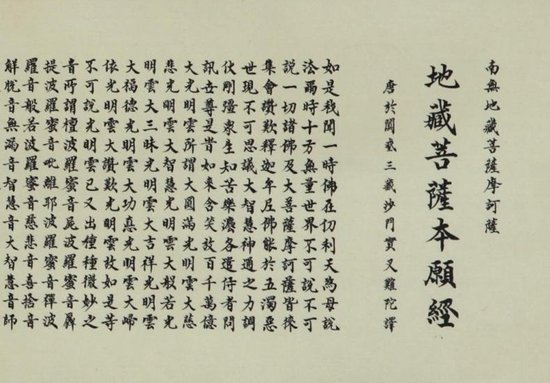 南無地藏菩薩摩訶薩
地藏菩薩本願經
唐於闐國三藏沙門實叉難陀譯
如是我聞一時佛在忉利天為母說
灋爾時十方無量世界不可說不可
說一切諸佛及大菩薩摩訶薩皆來
集會讚歎釋迦牟尼佛能於五濁惡
世現不可思議大智慧神通之力調
伏剛彊眾生知苦樂灋各遣侍者問
訊世尊是時如來含笑放百千萬億
大光明雲所謂大圓滿光明雲大慈
悲光明雲大智慧光明雲大般若光
明雲大三昧光明雲大吉祥光明雲
大福德光明雲大功德光明雲大歸
依光明雲大讚歎光明雲放如是等
不可說光明雲已又出種種微妙之
音所謂檀波羅蜜音尸波羅蜜音羼
提波羅蜜音毗離耶波羅蜜音禪波
羅音般若波羅蜜音慈悲音喜捨音
解脫音無漏音智慧音大智慧音師